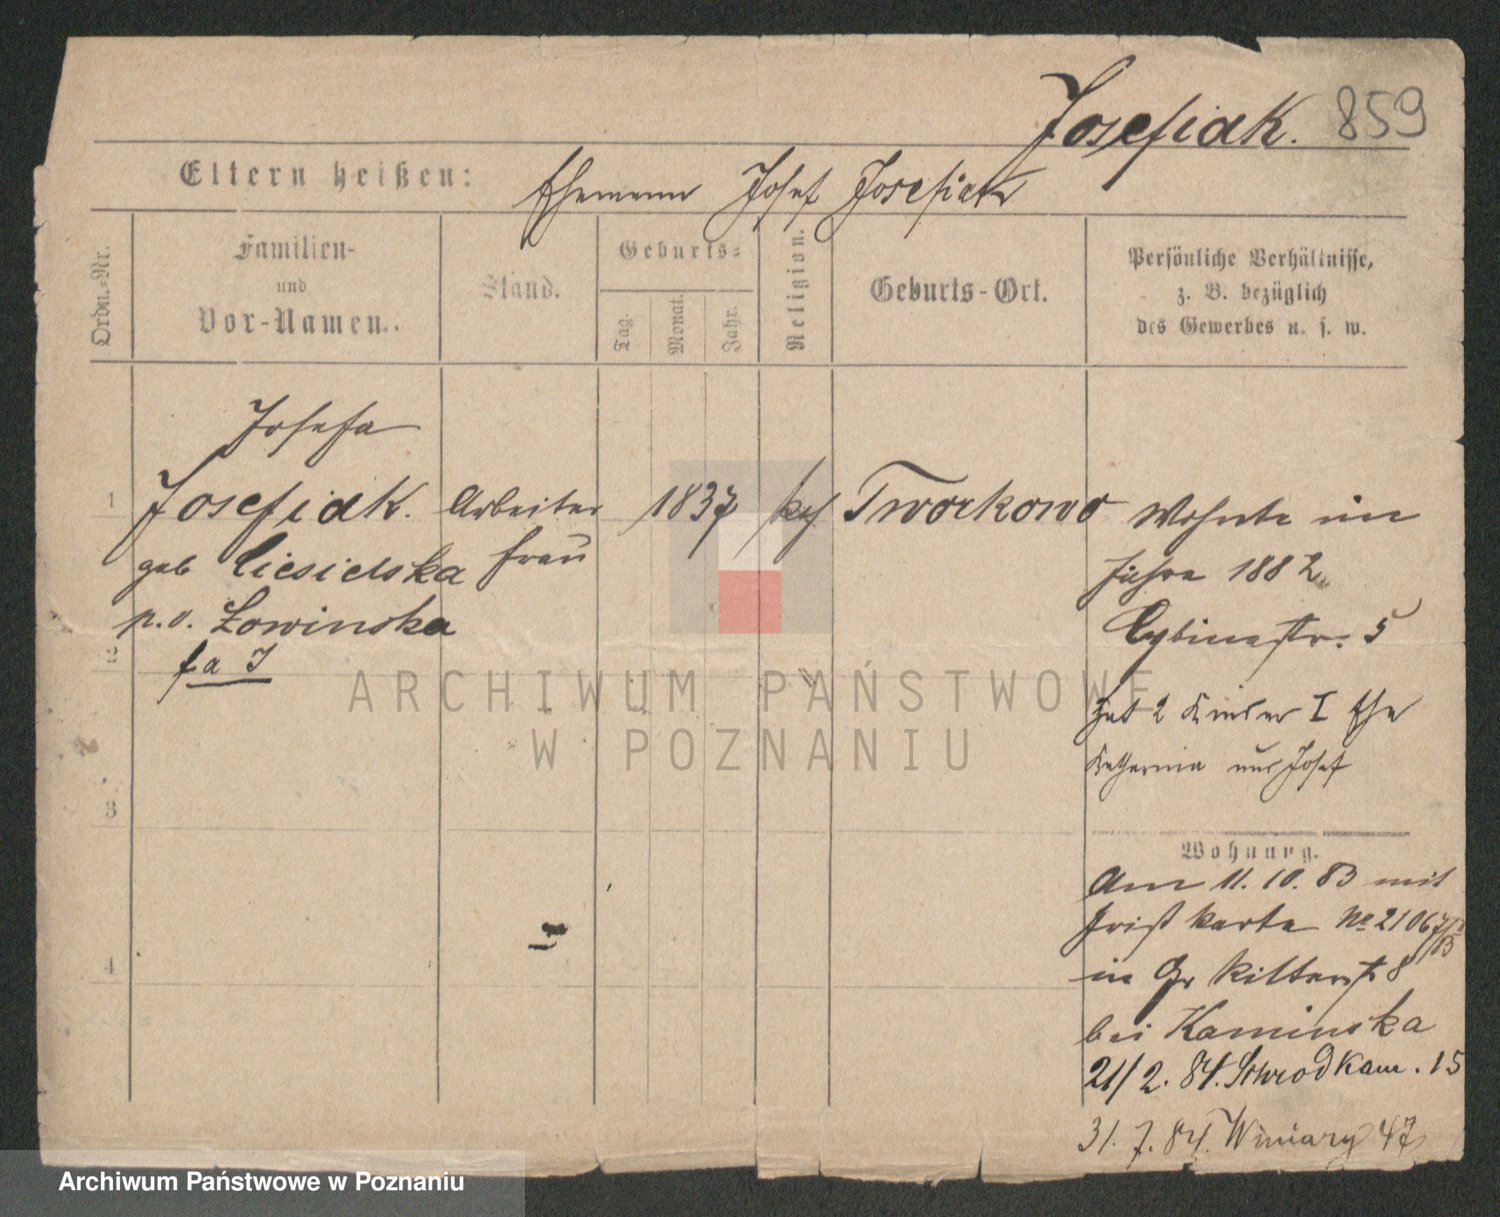 Josefiak. 859
Eltern heißen: Ehemann Josef Josefiak
Ordn.=Nr.
Familien-
und
Vor-Namen.
Stand.
Geburts=
Tag.
Monat.
Jahr.
Religion.
Geburts-Ort.
Persönliche Verhältnisse,
z. B. bezüglich
des Gewerbes u. s. w.
Josefa
1 Josefiak. Arbeiter 1837 kth Tworkowo Wohnte im
geb Ciesielska frau Jahre 1882
n.v. Łowinska Cybinastr. 5
fa I
hat 2 Kinder I Ehe
Katharina und Josef
3
Wohnung.
Am 11.10.83 mit
Frist karte No 21067
in Gr Ritterst 8
4
bei Kaminska
21/2.84. Schrodkam. 15
31.7.84. Winiary 47
ARCHIWUM PAŃSTWOWE
W POZNANIU
Archiwum Państwowe w Poznaniu